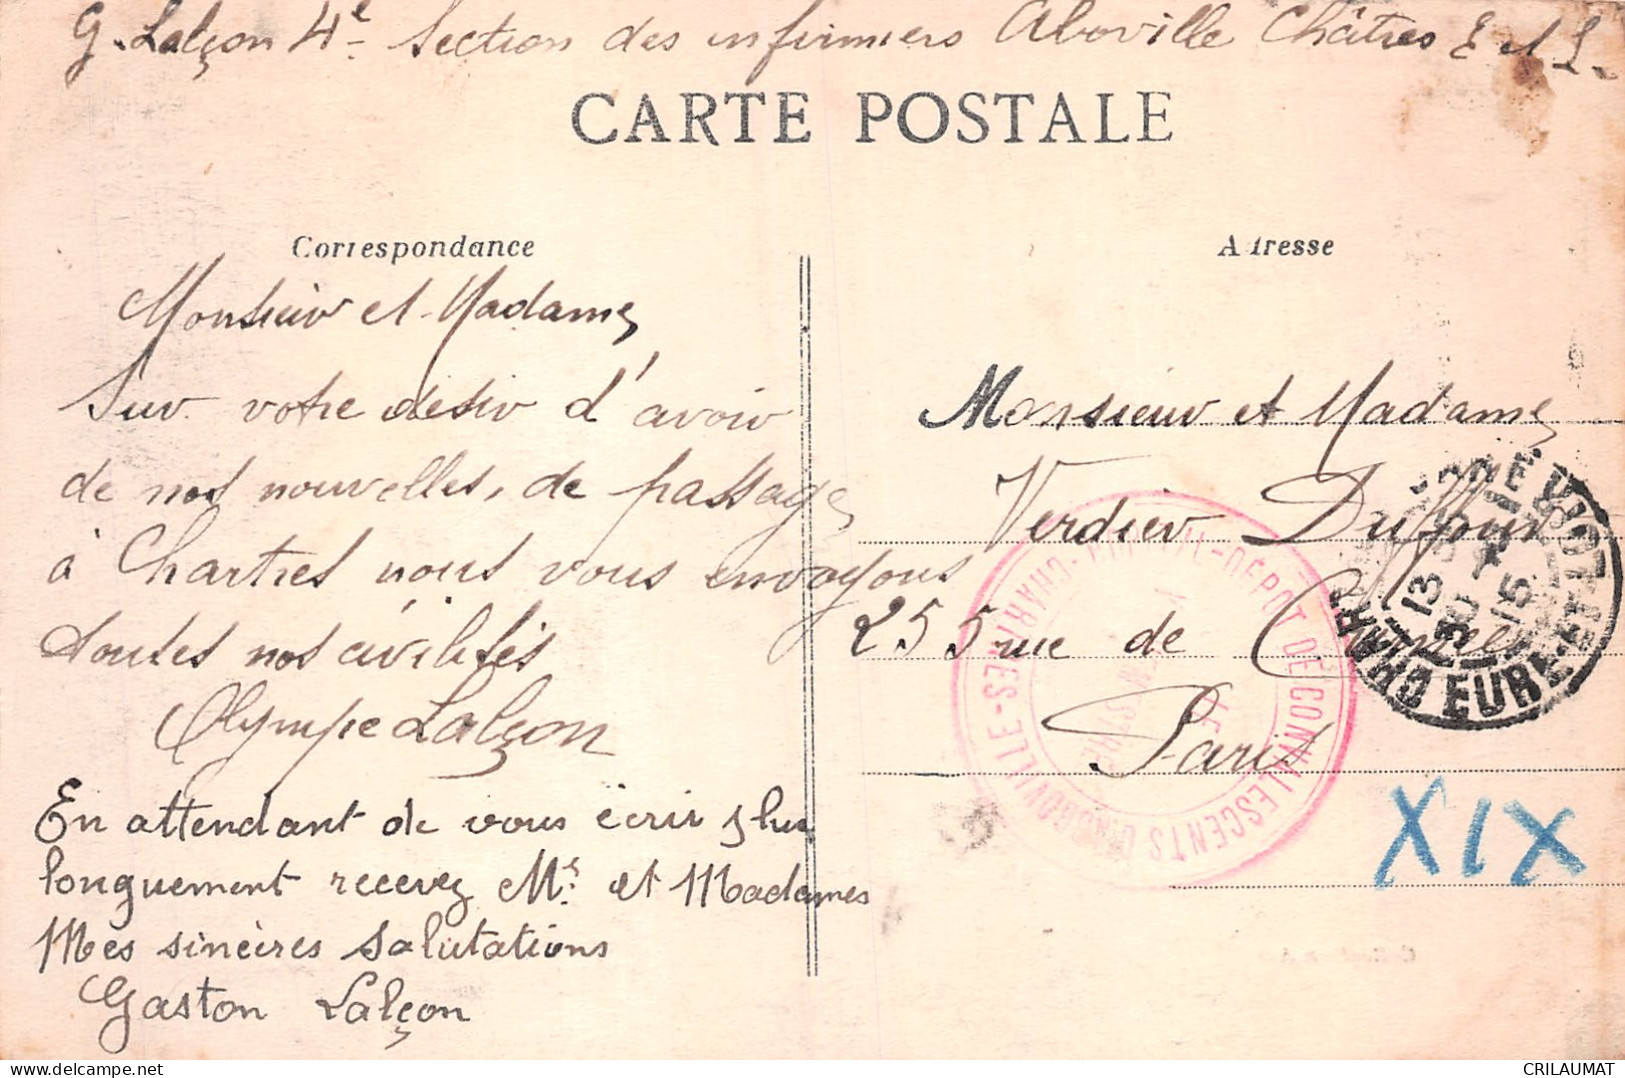 G. Lalçon 4e Section des infirmiers Aboville Châtres E et L.
CARTE POSTALE
Correspondance
Adresse
Monsieur et Madame,
Sur votre désir d'avoir
de nos nouvelles, de passage,
à Chartres nous vous envoyons
toutes nos civilités
Olympe Lalçon
En attendant de vous écrir plus
longuement recevez Mr. et Madames
Mes sincères salutations
Gaston Lalçon
Monsieur et Madame,
Verdier Dufour
255 rue de
Paris
HOPITAL-DÉPOT DE CONVALESCENTS D'ABOVILLE - CHARTRES
LE
CHARTRES EURE-ET-LOIR
13
30
15
XIX
CRILAUMAT